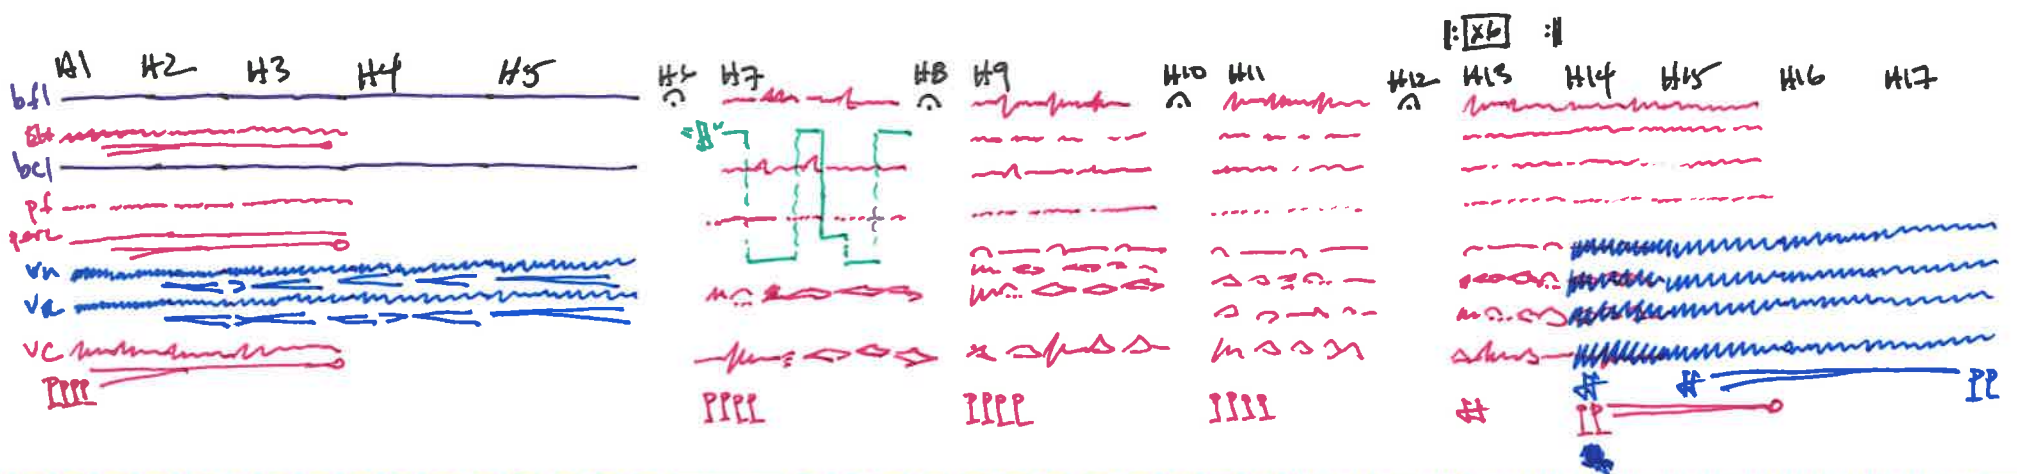 x6
H1 H2 H3 H4 H5 H6 H7 H8 H9 H10 H11 H12 H13 H14 H15 H16 H17
bfl
bcl
pf
perc
vn
va
vc
pppp pppp pppp pppp ff ff ff pp
pp